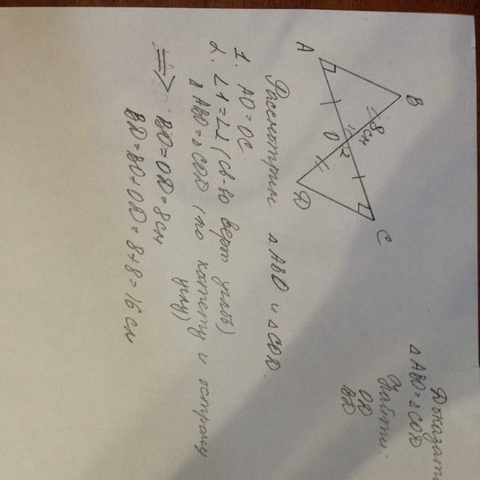 Доказать
△ABO=△COD
Найти:
OD
BD
A
B
8 см
O
1
2
C
D
Рассмотрим △ABO и △COD.
1. AO=OC
2. ∠1=∠2 (св-во верт углов)
△ABO=△COD (по катету и острому
углу)
=> BO=OD=8см
BD=BO+OD=8+8=16 см